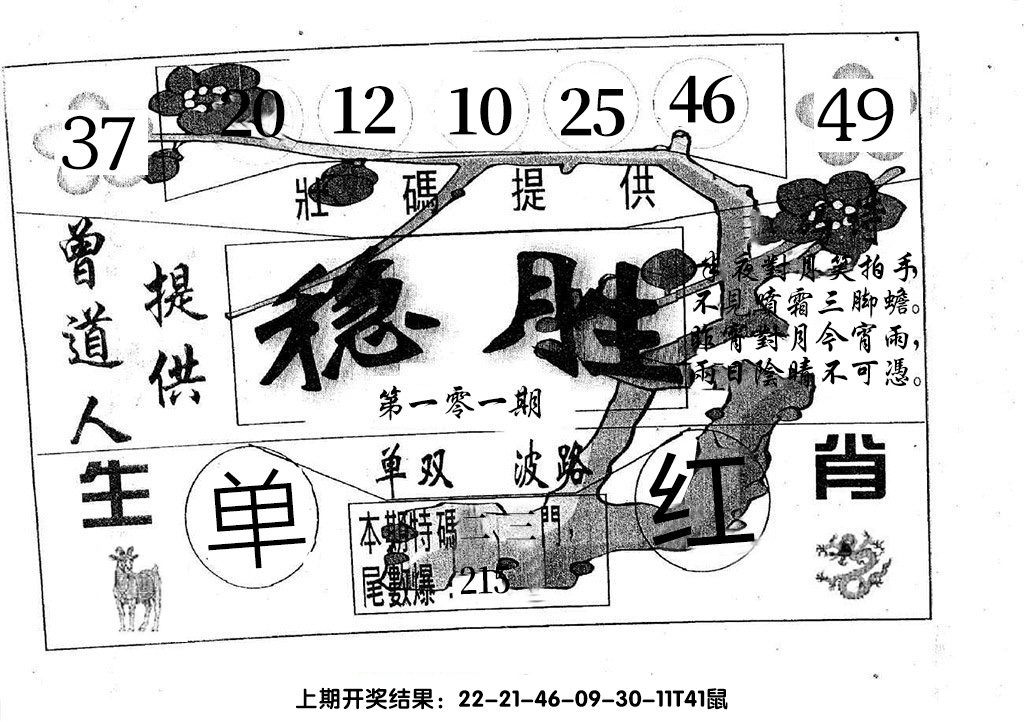 37 20 12 10 25 46 49
壯碼提供
曾道人
提供
稳胜
第一零一期
夜對月笑拍手,
不見噴霜三脚蟾。
昨宵對月今宵雨,
雨日陰晴不可憑。
单双 波路
生肖
单
红
本期特碼二、三門,
尾數爆:215
上期开奖结果:22-21-46-09-30-11T41鼠